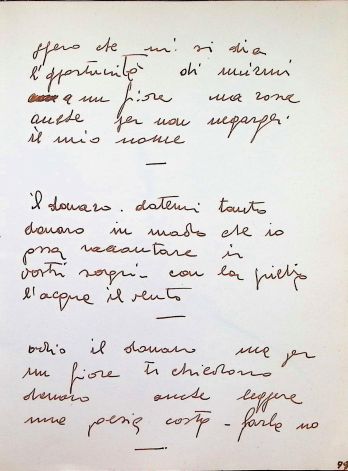 spero che mi si dia
l'opportunità di unirmi
a un fiore una rosa
anche per non negargli
il mio nome
—
il danaro. datemi tanto
danaro in modo che io
possa raccontare i
vostri sogni - con la pietra
l'acqua il vento
—
odio il danaro ma per
un fiore ti chiedono
danaro anche leggere
una poesia costa - farla no
—
98